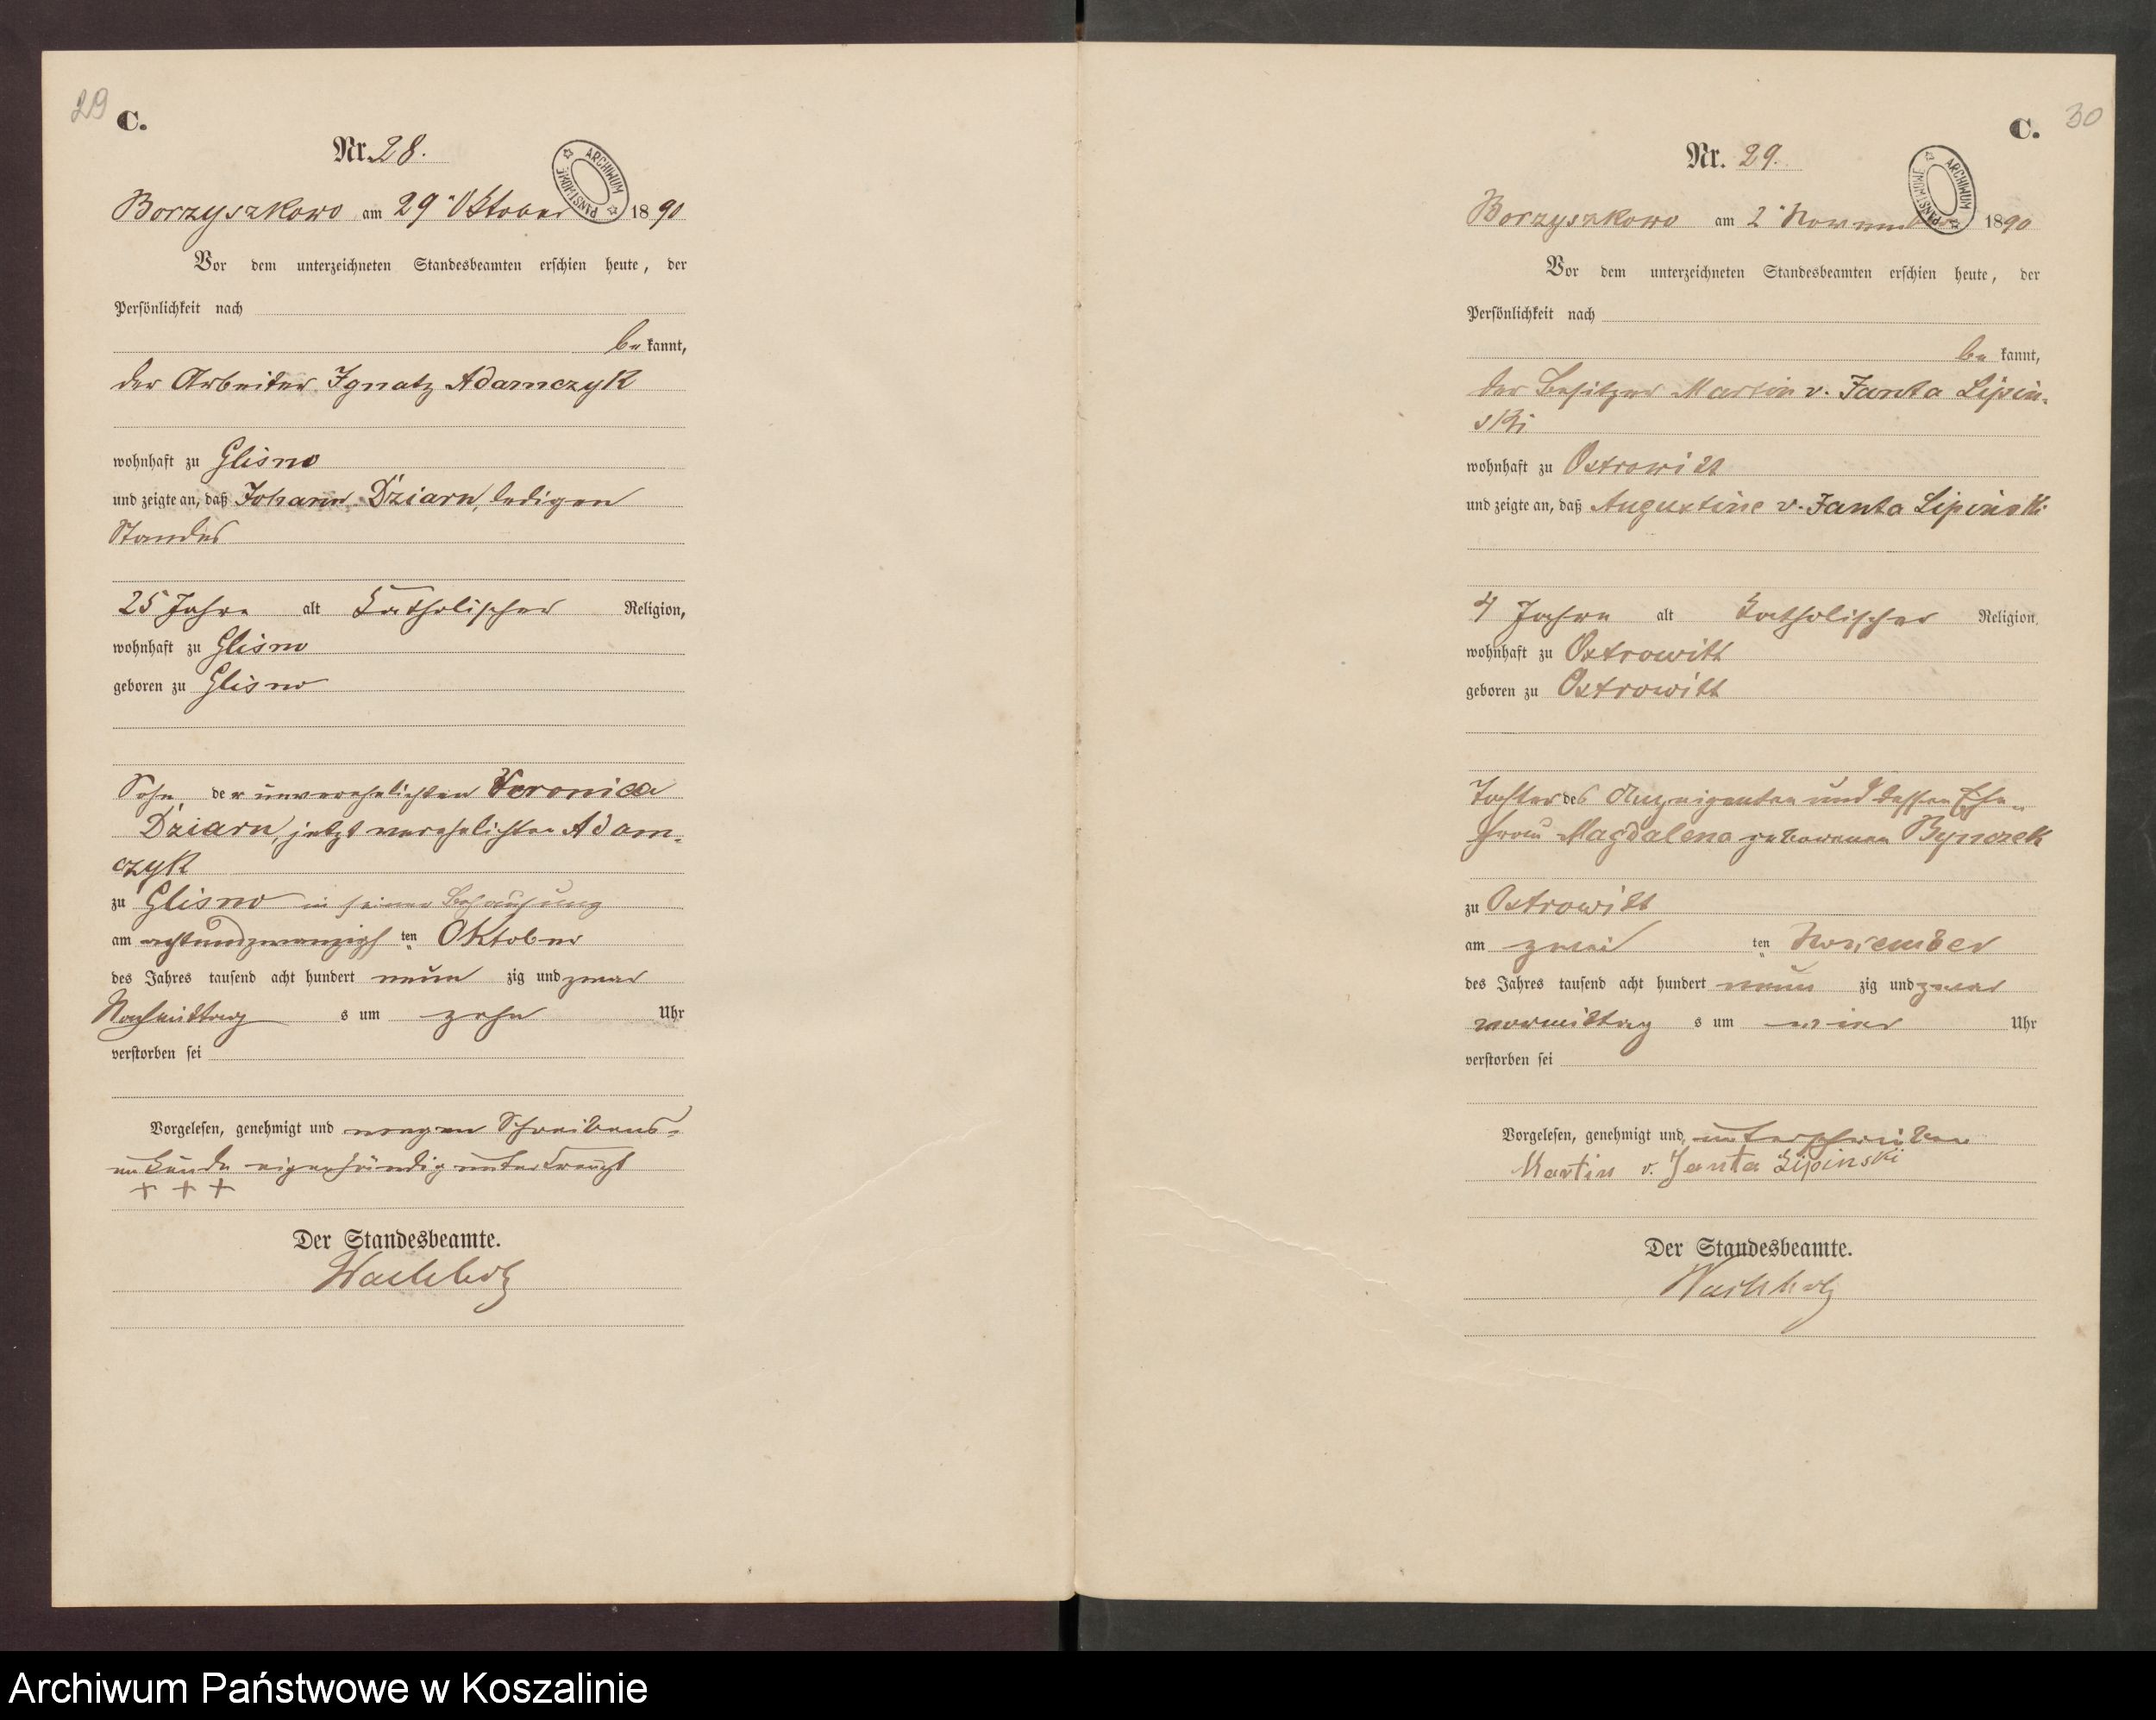 29
C.
Nr. 28.
ARCHIWUM PAŃSTWOWE
Borzyszkowo am 29 Oktober 1890
Vor dem unterzeichneten Standesbeamten erschien heute, der
Persönlichkeit nach
be kannt,
der Arbeiter Ignatz Adamczyk
wohnhaft zu Glisno
und zeigte an, daß Johann Dziarn, ledigen
Standes
25 Jahre alt katholischer Religion,
wohnhaft zu Glisno
geboren zu Glisno
Sohn der unverehelichten Veronica
Dziarn, jetzt verehelichten Adam-
czyk
zu Glisno in seiner Behausung
am achtundzwanzigsten Oktober
des Jahres tausend acht hundert neun zig und zwar
Nachmittags um zehn Uhr
verstorben sei
Vorgelesen, genehmigt und wegen Schreibens-
unkunde eigenhändig unterkreuzt
+ + +
Der Standesbeamte.
Wachholz
30
C.
Nr. 29.
ARCHIWUM PAŃSTWOWE
Borzyszkowo am 2 November 1890
Vor dem unterzeichneten Standesbeamten erschien heute, der
Persönlichkeit nach
be kannt,
der Besitzer Martin v. Janta Lipin-
ski
wohnhaft zu Ostrowitt
und zeigte an, daß Augustine v. Janta Lipinski
4 Jahre alt katholischer Religion,
wohnhaft zu Ostrowitt
geboren zu Ostrowitt
Tochter des Anzeigenden und dessen Ehe-
frau Magdalena geborenen
zu Ostrowitt
am zweiten November
des Jahres tausend acht hundert neun zig und zwar
vormittags um vier Uhr
verstorben sei
Vorgelesen, genehmigt und unterschrieben
Martin v. Janta Lipinski
Der Standesbeamte.
Wachholz
Archiwum Państwowe w Koszalinie